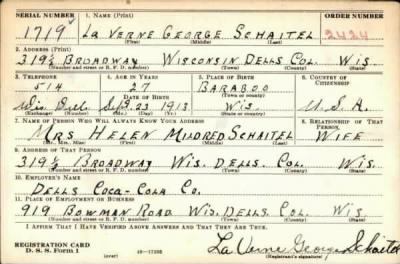 SERIAL NUMBER 1. NAME (Print) ORDER NUMBER
1719 La Verne George Schaitel 2424
(First) (Middle) (Last)
2. ADDRESS (Print)
319½ Broadway Wisconsin Dells Col. Wis.
(Number and street or R. F. D. number) (Town) (County) (State)
3. TELEPHONE 4. AGE IN YEARS 5. PLACE OF BIRTH 6. COUNTRY OF CITIZENSHIP
514 27 Baraboo
DATE OF BIRTH (Town or county)
Wis. Dells Sept. 23 1913 Wis. U.S.A.
(Exchange) (Number) (Mo.) (Day) (Yr.) (State or country)
7. NAME OF PERSON WHO WILL ALWAYS KNOW YOUR ADDRESS 8. RELATIONSHIP OF THAT PERSON
Mrs Helen Mildred Schaitel Wife
(Mr., Mrs., Miss) (First) (Middle) (Last)
9. ADDRESS OF THAT PERSON
319½ Broadway Wis. Dells. Col. Wis.
(Number and street or R. F. D. number) (Town) (County) (State)
10. EMPLOYER'S NAME
Dells Coca-Cola Co.
11. PLACE OF EMPLOYMENT OR BUSINESS
919 Bowman Road Wis. Dells. Col. Wis
(Number and street or R. F. D. number) (Town) (County) (State)
I AFFIRM THAT I HAVE VERIFIED ABOVE ANSWERS AND THAT THEY ARE TRUE.
REGISTRATION CARD
D. S. S. Form 1 16—17105 La Verne George Schaitel
(Registrant's signature)